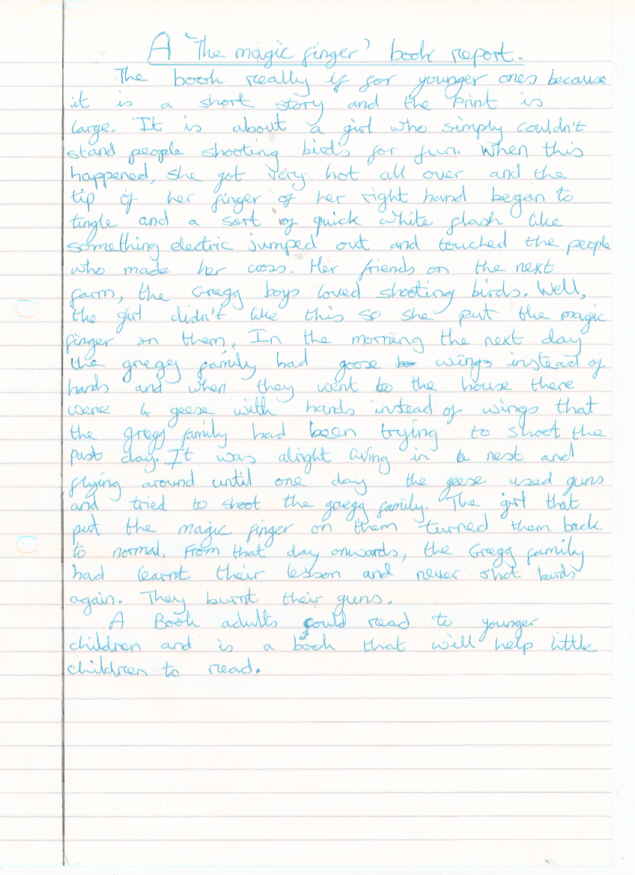 A 'The magic finger' book report.
The book really is for younger ones because
it is a short story and the print is
large. It is about a girl who simply couldn't
stand people shooting birds for fun. When this
happened, she got very hot all over and the
tip of her finger of her right hand began to
tingle and a sort of quick white flash like
something electric jumped out and touched the people
who made her cross. Her friends on the next
farm, the Gregg boys loved shooting birds. Well,
the girl didn't like this so she put the magic
finger on them. In the morning the next day
the gregg family had goose wings instead of
hands and when they went to the house there
were 4 geese with hands instead of wings that
the gregg family had been trying to shoot the
past day. It was alright living in a nest and
flying around until one day the geese used guns
and tried to shoot the gregg family. The girl that
put the magic finger on them turned them back
to normal. From that day onwards, the Gregg family
had learnt their lesson and never shot birds
again. They burnt their guns.
A Book adults could read to younger
children and is a book that will help little
children to read.